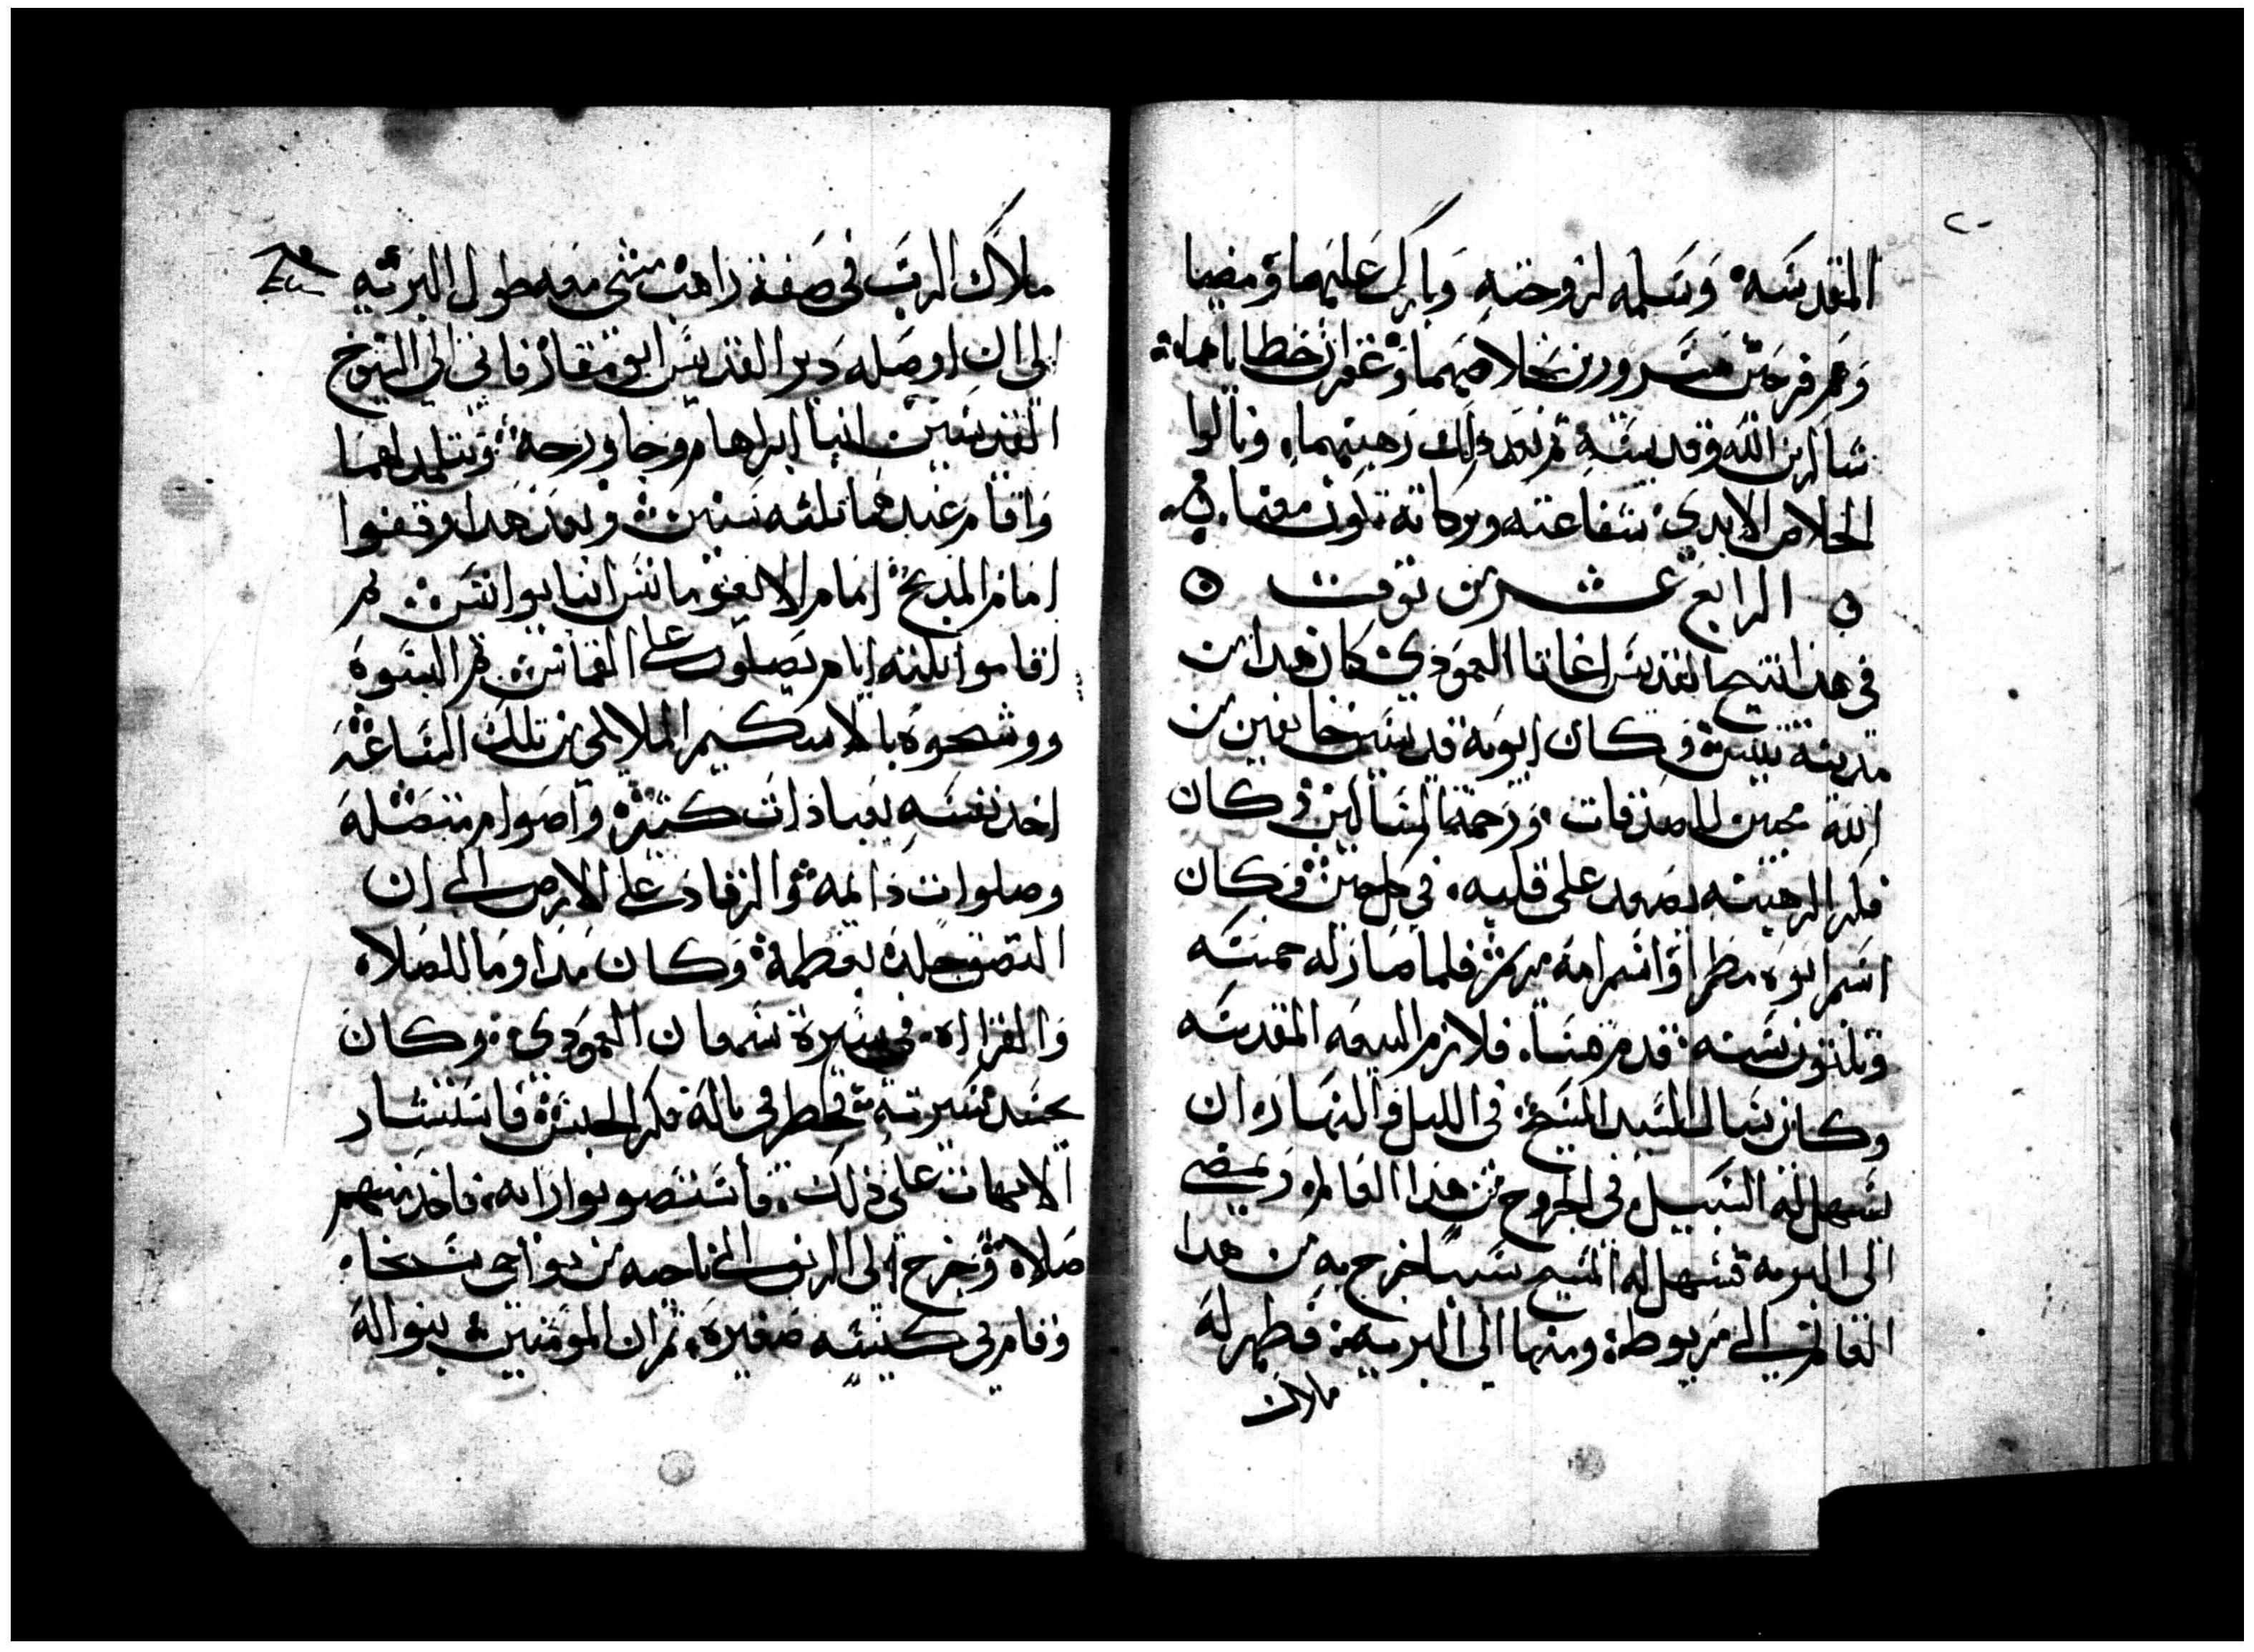 ٢٠
المقدسه وسلمه لزوجته وبارك عليهما ومضيا
وهم فرحين مسرورين بخلاصهما وغفران خطاياهما
شاكرين الله وقديسه ثم بعد ذلك رهبهما ونالوا
الخلاص الابدي شفاعته وبركاته تكون معنا
الرابع عشر من توت
في هذا تنيح القديس اغاتو العمودي كان هذا من
مدينة تنيس وكان ابويه قديسين خايفين من
الله محبين للصدقات ورحمة المساكين وكان
فكر الرهبنه يصعد على قلبه في كل حين وكان
اسم ابوه مطرا واسم امه مريم فلما صار له خمسه
وثلثون سنه قدم قسا فلازم البيعه المقدسه
وكان يسال السيد المسيح في الليل والنهار ان
يسهل له السبيل في الخروج من هذا العالم ويمضي
الى البريه فسهل له المسيح سببا خرج به من هدا
العالم الى مريوط ومنها الى البريه فظهر له
ملاك
ملاك الرب في صفة راهب مشى معه طول البريه
الى ان اوصله دير القديس ابو مقار فاتى الى الشيوخ
القديسين انبا ابراهام وجاورجه وتتلمد لهما
واقام عندهما ثلثه سنين وبعد هدا وقفوا
امام المدبح امام الايغومانس انبا يوانس ثم
اقاموا ثلثه ايام يصلون على القماش ثم البسوه
ووشحوه بالاسكيم الملايكي من تلك الساعه
اخد نفسه بعبادات كثيره واصوام متصله
وصلوات دايمه والرقاد على الارض الى ان
التصق جلده بعظمه وكان مداوما للصلاه
والقراه في سيرة سمعان العمودي وكان
يحسد سيرته فخطر في باله فكر الحبس فاستشار
الابهات على ذلك فاستصوبوا رايه فاخد منهم
صلاه وخرج الى الريف الى ناحيه من نواحي سخا
وقام في كنيسه صغيره ثم ان المومنين بنوا له